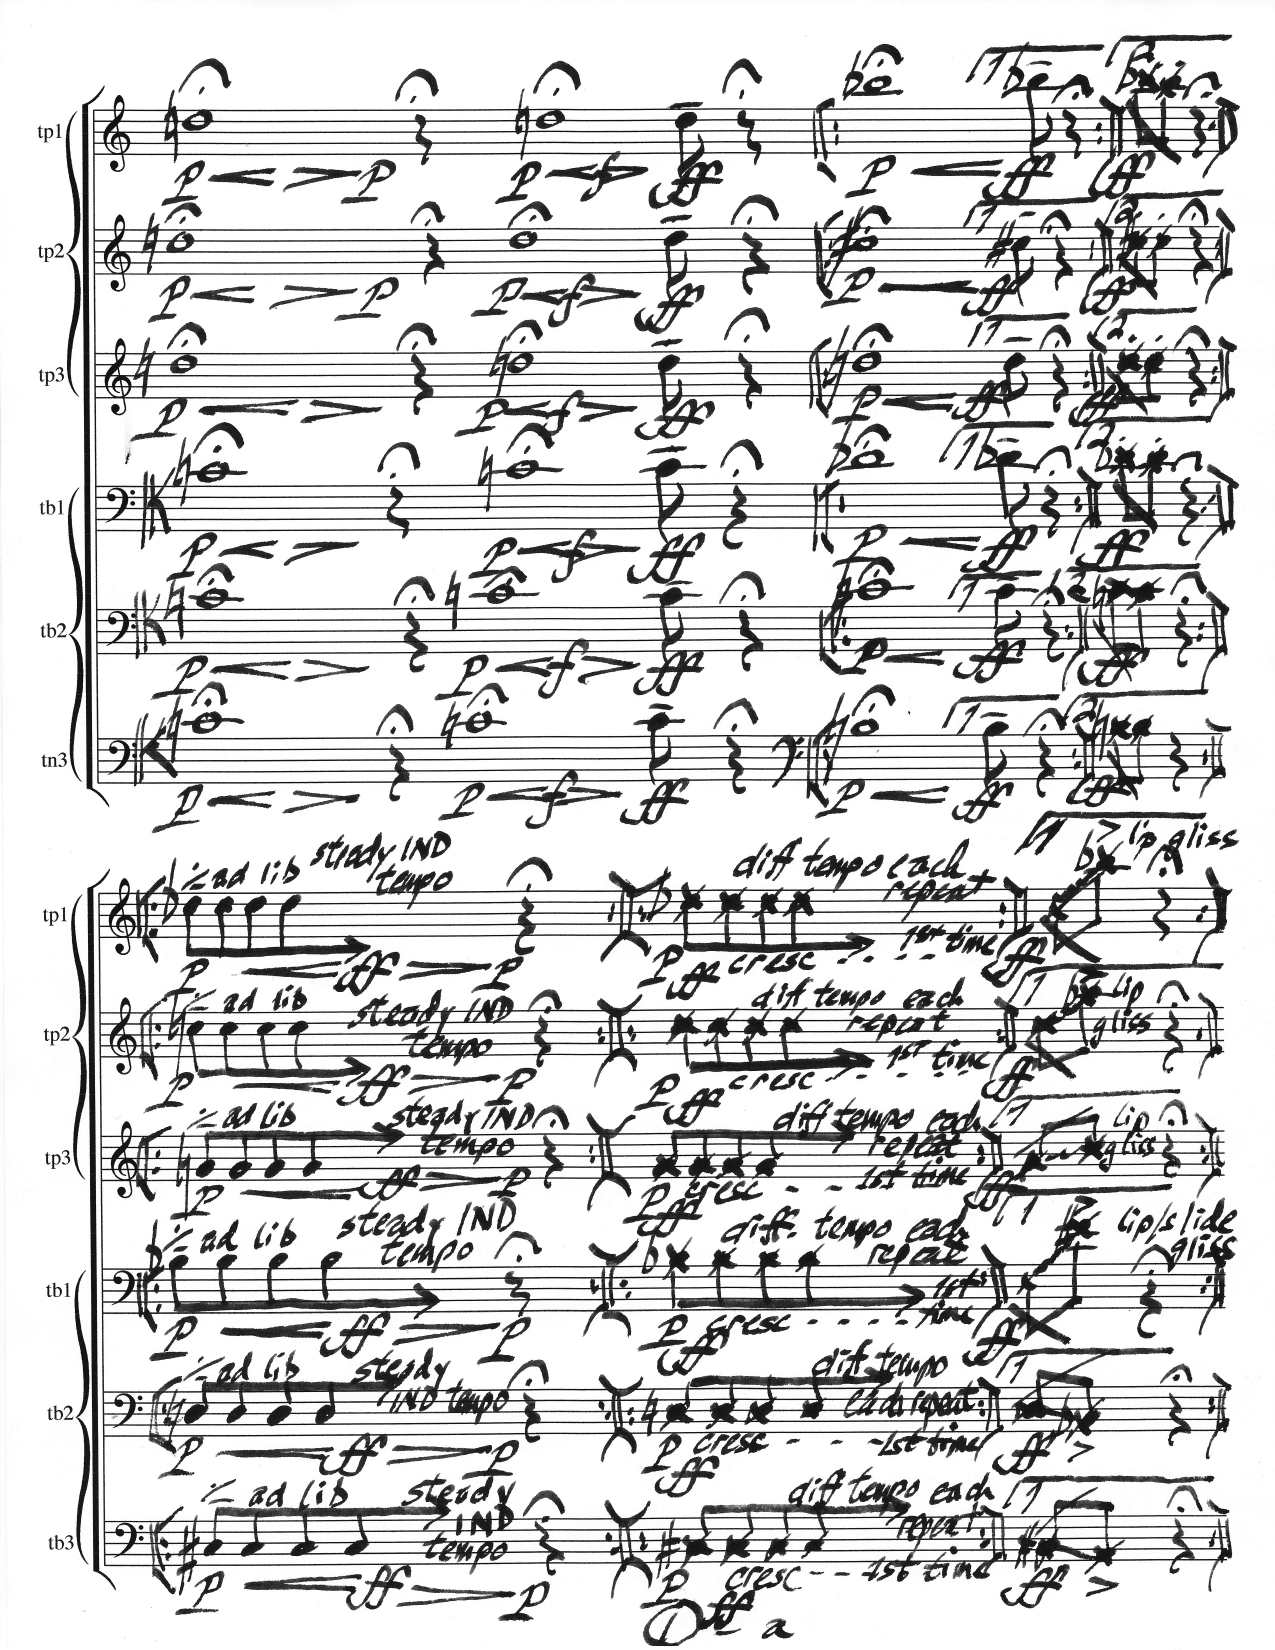 tp1
p p p f ff p ff ff
1 2
tp2
p p p f ff p ff ff
1 2
tp3
p p f ff p ff ff
1 2
tb1
p p f ff p ff ff
1 2
tb2
p p f ff p ff ff
1 2
tn3
p p f ff p ff ff
1 2
tp1
ad lib steady IND tempo
diff tempo each repeat
1 lip gliss
p ff p p ff cresc - - - - 1st time ff
tp2
ad lib steady IND tempo
diff tempo each repeat
1 lip gliss
p ff p p ff cresc - - - - 1st time ff
tp3
ad lib steady IND tempo
diff tempo each repeat
1 lip gliss
p ff p p ff cresc - - 1st time ff
tb1
ad lib steady IND tempo
diff. tempo each repeat
1 lip/slide gliss
p ff p p ff cresc - - - - 1st time ff
tb2
ad lib steady IND tempo
diff tempo each repeat
1
p ff p p ff cresc - - - 1st time ff
tb3
ad lib steady IND tempo
diff tempo each repeat
1
p ff p p ff cresc - - - 1st time ff
1 a